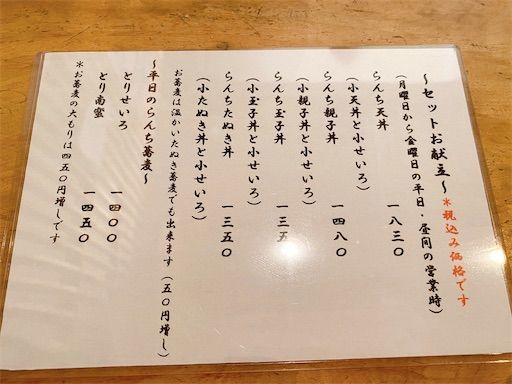 ～セットお献立～＊税込み価格です
（月曜日から金曜日の平日・昼間の営業時）
らんち天丼 一八三〇
（小天丼と小せいろ）
らんち親子丼 一四八〇
（小親子丼と小せいろ）
らんち玉子丼 一三五〇
（小玉子丼と小せいろ）
らんちたぬき丼 一三五〇
（小たぬき丼と小せいろ）
お蕎麦は温かいたぬき蕎麦でも出来ます（五〇円増し）
～平日のらんち蕎麦～
とりせいろ 一四〇〇
とり南蛮 一四五〇
＊お蕎麦の大もりは四五〇円増しです